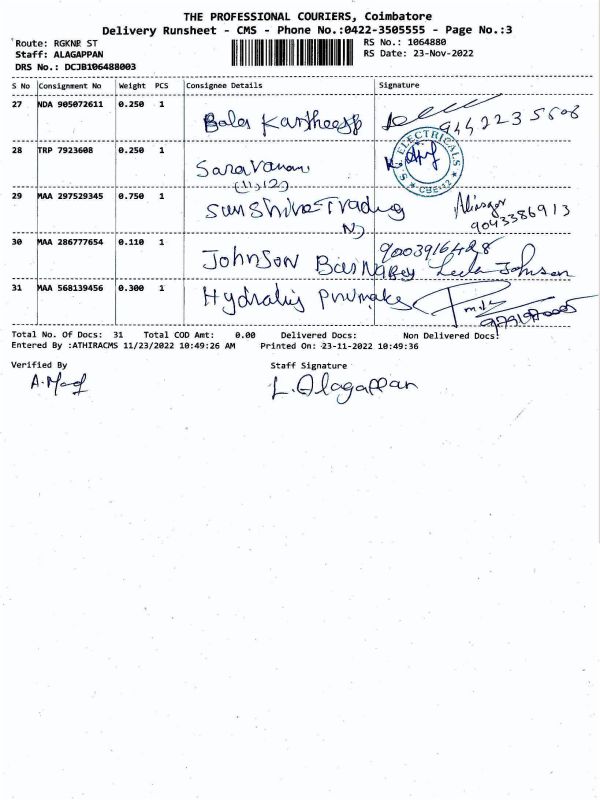 THE PROFESSIONAL COURIERS, Coimbatore
Delivery Runsheet - CMS - Phone No.:0422-3505555 - Page No.:3
Route: RGKNR ST RS No.: 1064880
Staff: ALAGAPPAN RS Date: 23-Nov-2022
DRS No.: DCJB106488003
S No Consignment No Weight PCS Consignee Details Signature
27 NDA 905072611 0.250 1 Bala 9442235608
28 TRP 7923608 0.250 1 Saravanan ELECTRICALS CBE-12
(11)(12)
29 MAA 297529345 0.750 1 Sunshine Trading
9043386913
30 MAA 286777654 0.110 1 Johnson 9003916428 Leela Johnson
31 MAA 568139456 0.300 1
Total No. Of Docs: 31 Total COD Amt: 0.00 Delivered Docs: Non Delivered Docs:
Entered By :ATHIRACMS 11/23/2022 10:49:26 AM Printed On: 23-11-2022 10:49:36
Verified By Staff Signature
L. Alagappan